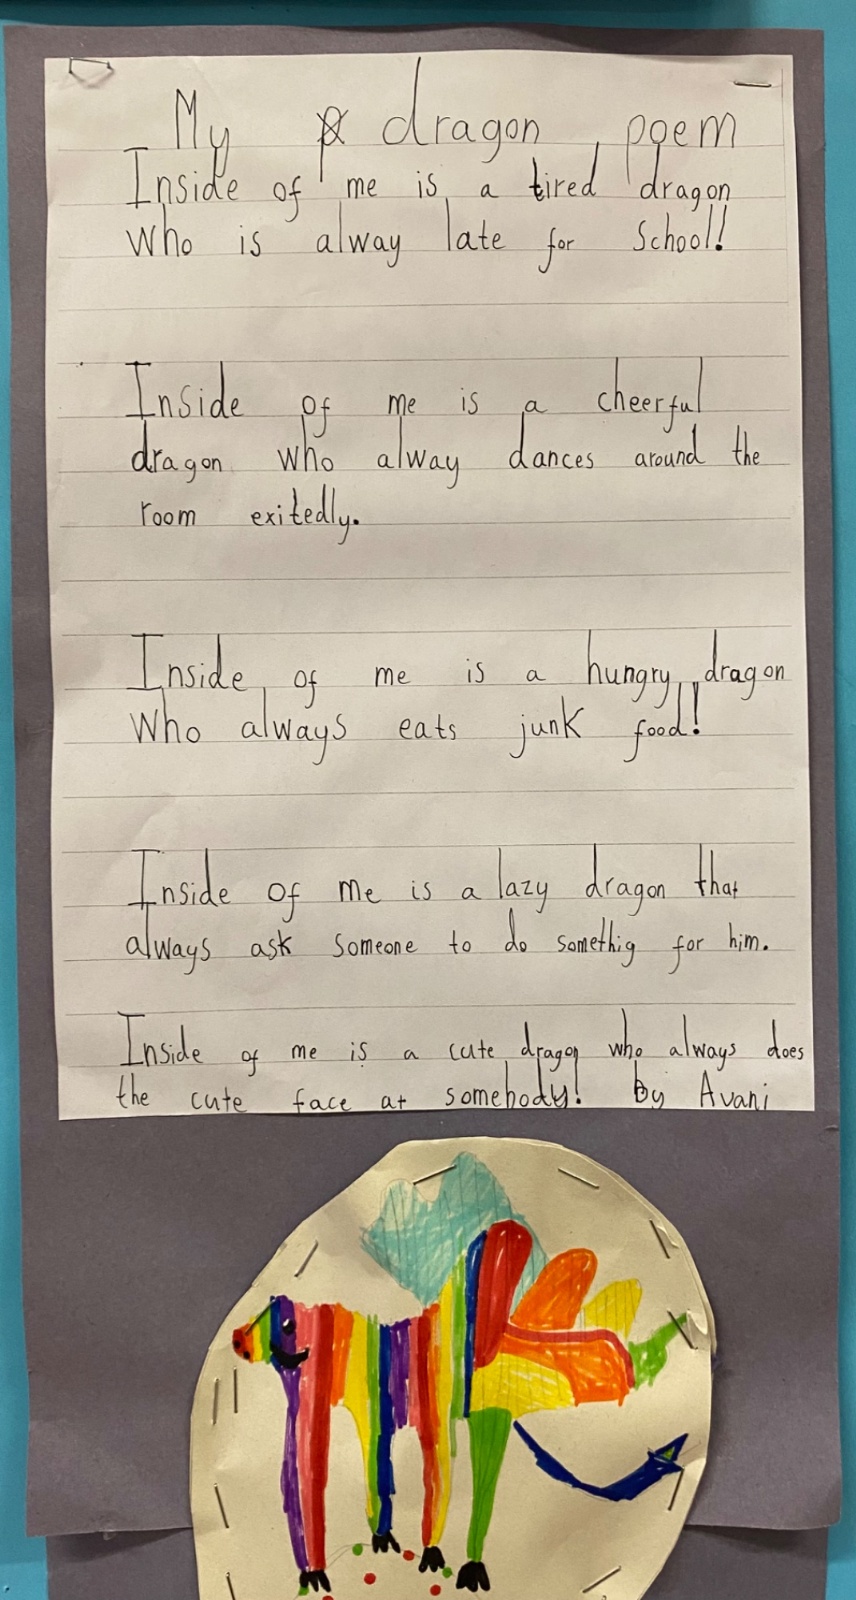 My dragon poem
Inside of me is a tired dragon
who is alway late for school!
Inside of me is a cheerful
dragon who alway dances around the
room exitedly.
Inside of me is a hungry dragon
Who always eats junk food!
Inside of me is a lazy dragon that
always ask someone to do somethig for him.
Inside of me is a cute dragon who always does
the cute face at somebody! by Avani